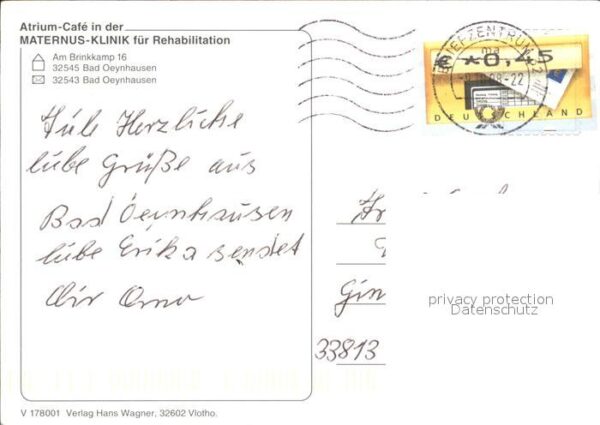 Atrium-Café in der
MATERNUS-KLINIK für Rehabilitation
Am Brinkkamp 16
32545 Bad Oeynhausen
32543 Bad Oeynhausen
BRIEFZENTRUM 32
ma
-22
€ *0,45
DEUTSCHLAND
Herzliche
liebe Grüße aus
Bad Oeynhausen
liebe Erika sendet
Dir
33813
privacy protection
Datenschutz
V 178001 Verlag Hans Wagner, 32602 Vlotho.